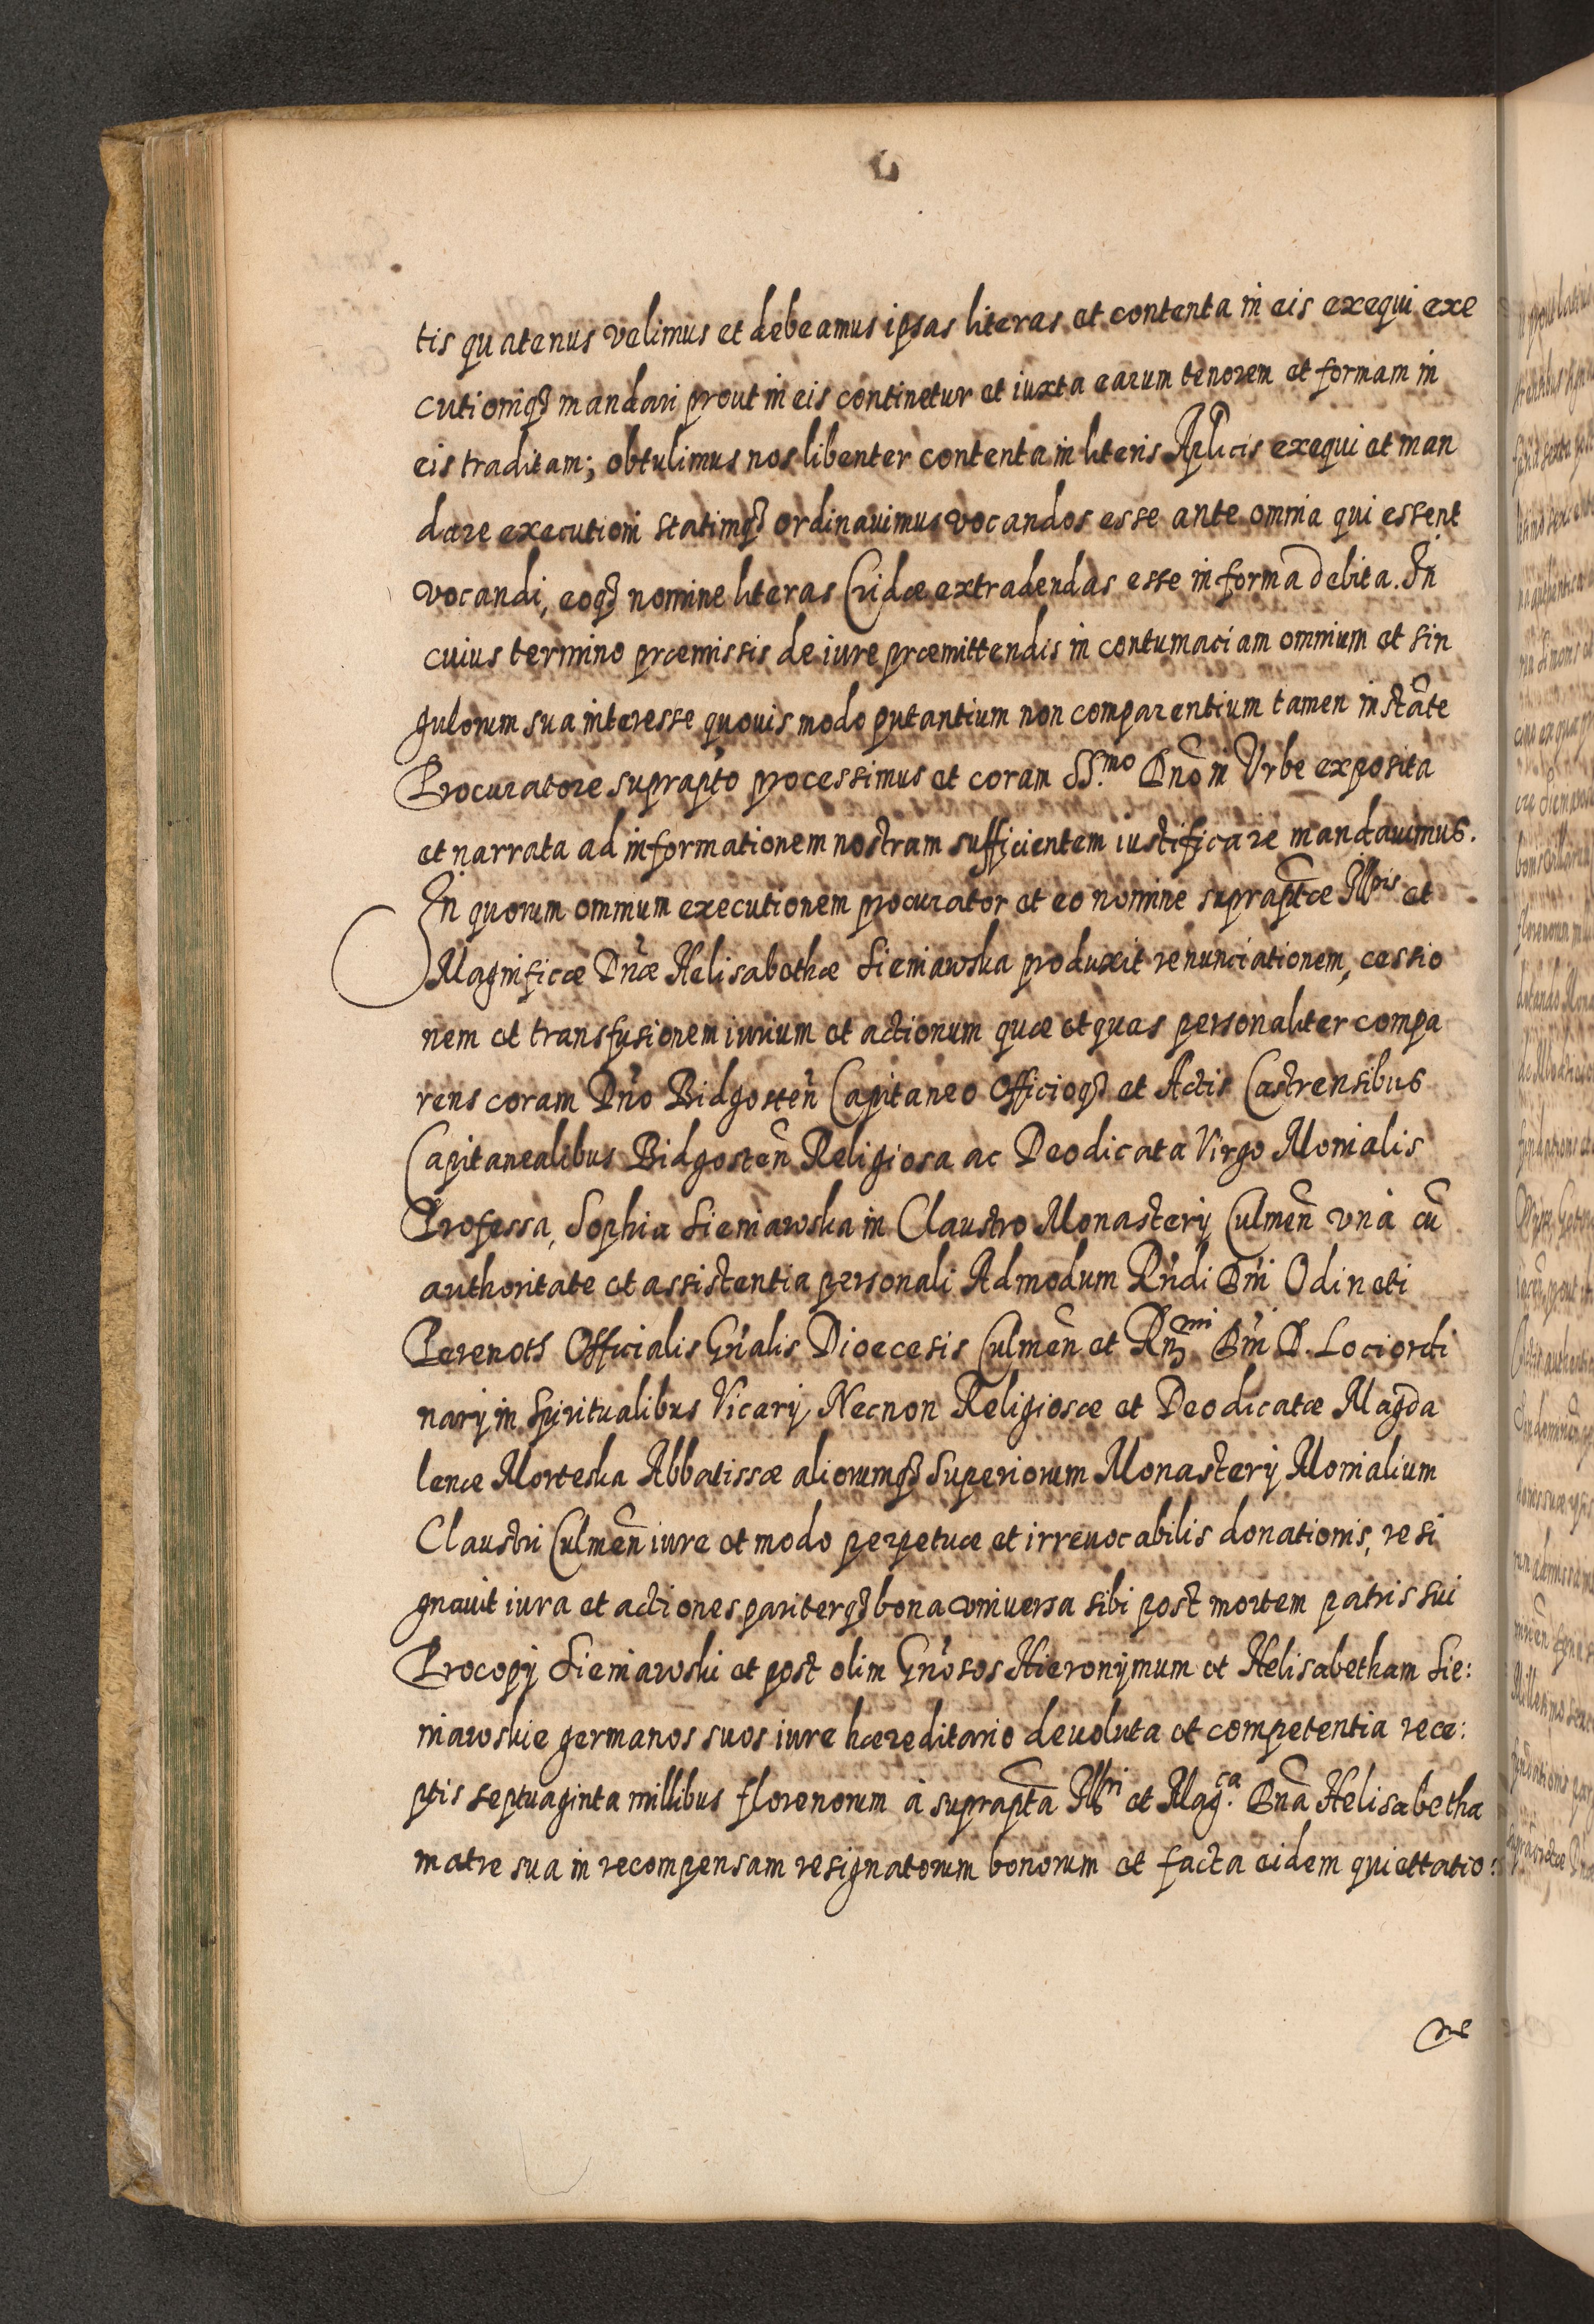 tis quatenus velimus et debeamus ipsas literas et contenta in eis exequi exe
cutioniq₃ mandari prout in eis continetur et iuxta earum tenorem et formam in
eis traditam; obtulimus nos libenter contenta in literis Aplicis exequi et man
dare executioni statimq₃ ordinauimus vocandos esse ante omnia qui essent
vocandi, eoq₃ nomine literas Cridæ extradendas esse in forma debita. In
cuius termino præmissis de iure præmittendis in contumaciam omnium et sin
gulorum sua interesse quouis modo putantium non comparentium tamen instãte
Procuratore suprapto processimus et coram SS.mo Dno in Vrbe exposita
et narrata ad informationem nostram sufficientem iustificare mandauimus.
In quorum omnium executionem procurator et eo nomine supraptæ Illris et
Magnificæ Dnæ Helisabethæ Sieniawska produxit renunciationem, cessio
nem et transfusionem iurium et actionum quæ et quas personaliter compa
rens coram Dno Bidgosten Capitaneo Officioq₃ et Actis Castrensibus
Capitanealibus Bidgosten Religiosa ac Deodicata Virgo Monialis
Professa, Sophia Sieniawska in Claustro Monasterij Culmen vnà cũ
authoritate et assistentia personali Admodum Rndi Dni Odineti
Perenoth Officialis Gñalis Dioecesis Culmen et Rmi Dni D. Lociordi
narij in Spiritualibus Vicarij, Necnon Religiosæ et Deodicatæ Magda
lenæ Morteska Abbatissæ aliorumq₃ Superiorum Monasterij Monialium
Claustri Culmen iure et modo perpetuæ et irreuocabilis donationis, resi
gnauit iura et actiones pariterq₃ bona vniuersa sibi post mortem patris sui
Procopij Sieniawski et post olim Gñosos Hieronymum et Helisabetham Sie:
niawskie germanos suos iure hæreditario deuoluta et competentia rece:
ptis septuaginta millibus florenorum à suprapta Illri et Mag.ca Dna Helisabetha
matre sua in recompensam resignatorum bonorum et facta eidem quiettatio:
ne